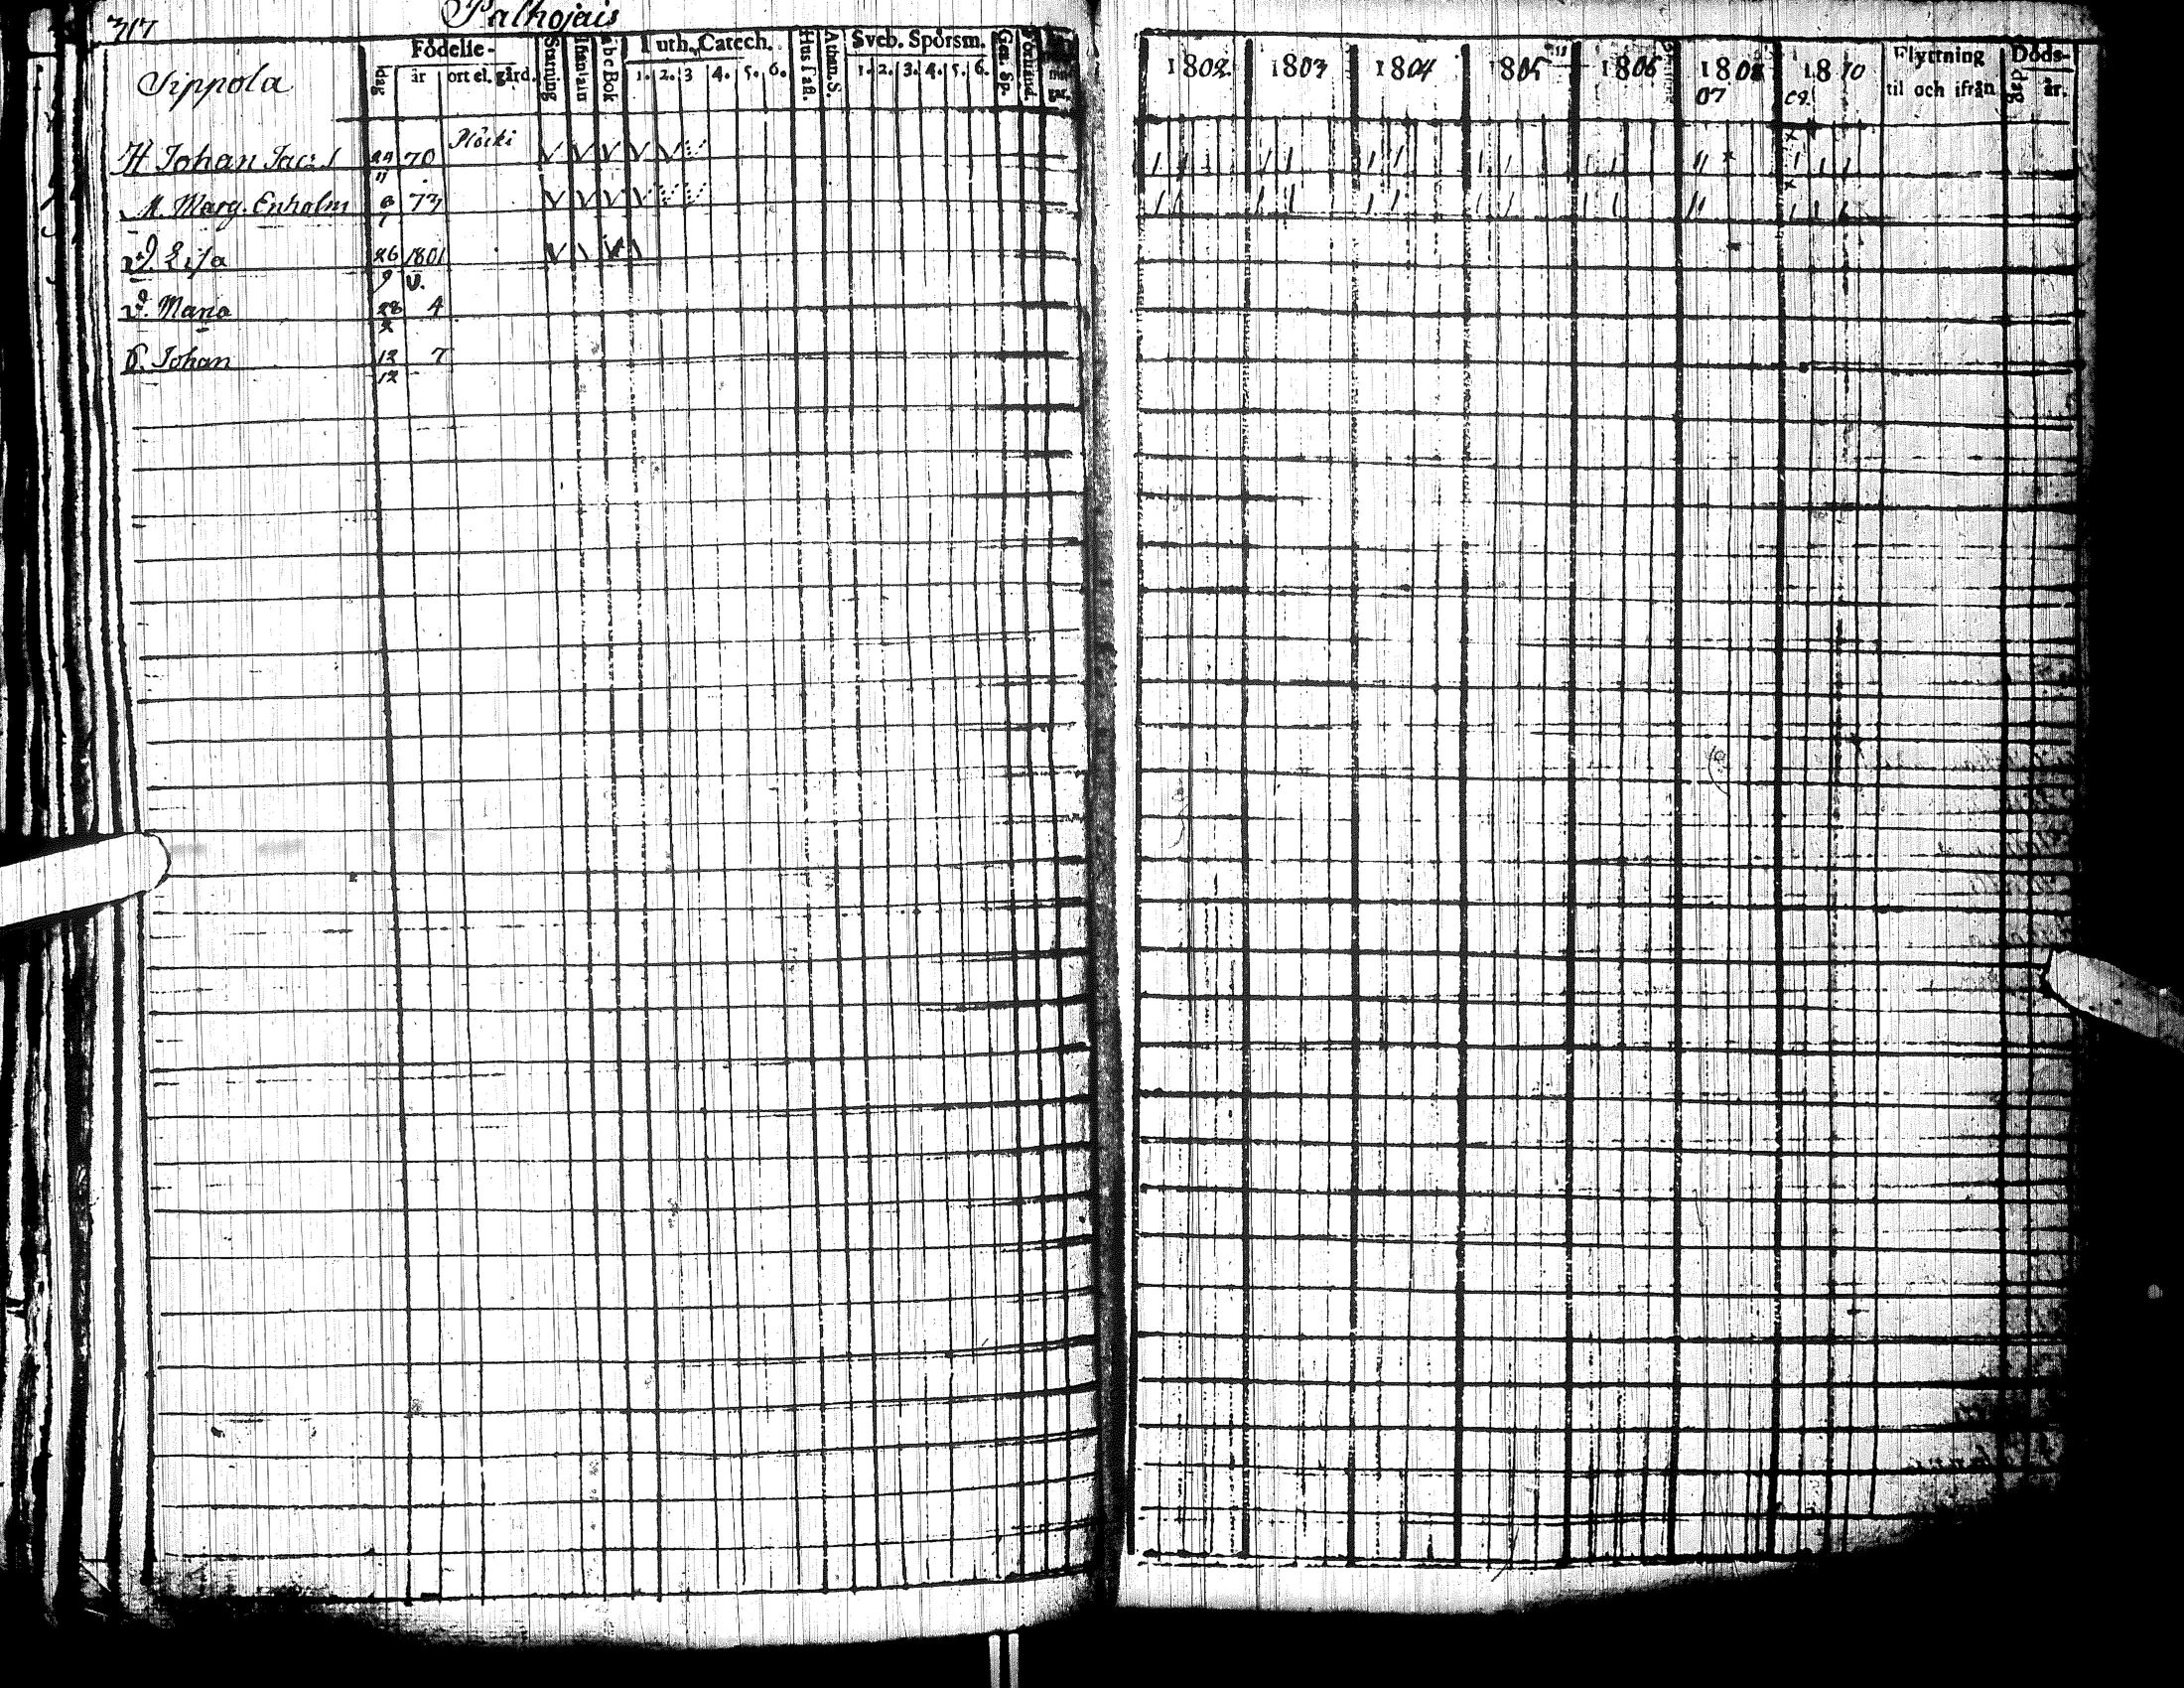 317 Palhojais
Sippola
Födelse-
dag år ort el. gård.
Stafning
Innanläsn
abc Bok
Luth. Catech.
1. 2. 3 4. 5. 6.
Hus Tafl.
Athan. S.
Sveb. Spörsm.
1. 2. 3. 4. 5. 6.
Gen. Sp.
Förstånd.
1802 1803 1804 1805 1806 1808 1810
07 09.
Flyttning
til och ifrån
Döds-
dag år.
H Johan Jacs. 24 11 70
M. Marg. Enholm 73
D. Lisa 26 9 1801 U.
D. Maria 28 2 4
S. Johan 12 12 7